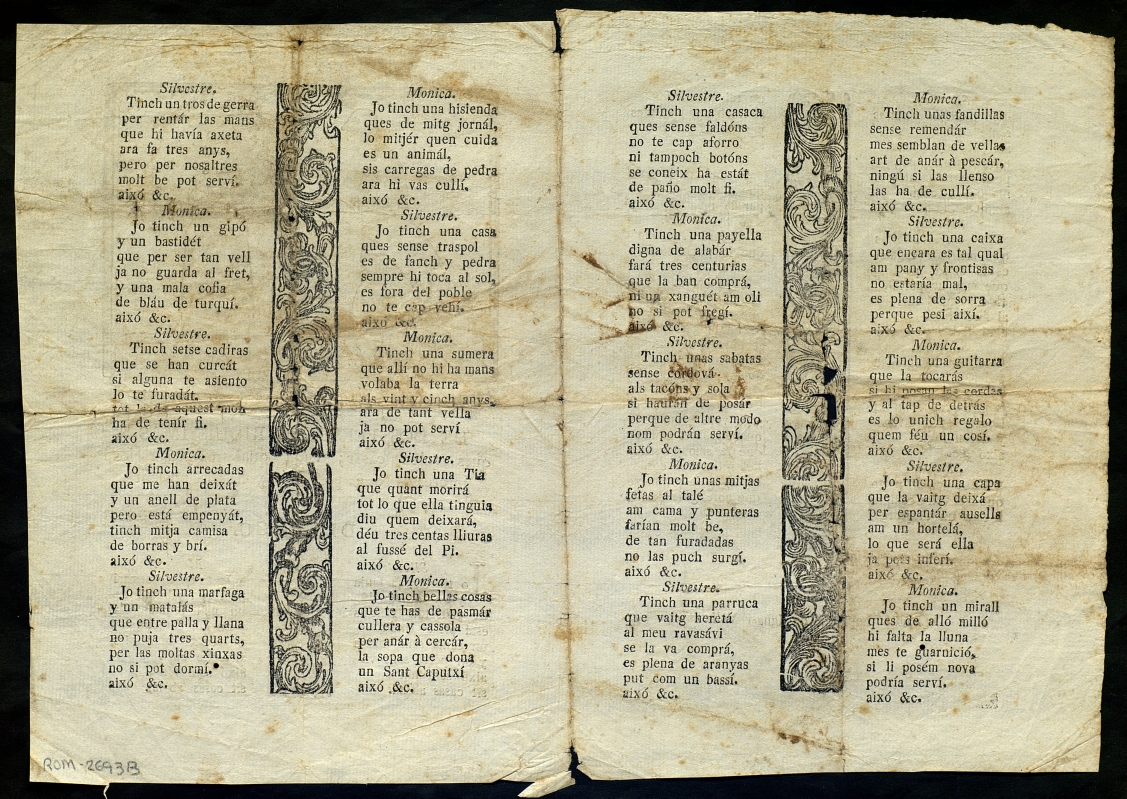 Silvestre.
Tinch un tros de gerra
per rentár las mans
que hi havía axeta
ara fa tres anys,
pero per nosaltres
molt be pot serví.
aixó &c.
Monica.
Jo tinch un gipó
y un bastidét
que per ser tan vell
ja no guarda al fret,
y una mala cofia
de bláu de turquí.
aixó &c.
Silvestre.
Tinch setse cadiras
que se han curcát
si alguna te asiento
lo te furadát.
tot lo de aquest mon
ha de tenír fi.
aixó &c.
Monica.
Jo tinch arrecadas
que me han deixát
y un anell de plata
pero está empenyát,
tinch mitja camisa
de borras y brí.
aixó &c.
Silvestre.
Jo tinch una marfaga
y un matalás
que entre palla y llana
no puja tres quarts,
per las moltas xinxas
no si pot dormí.
aixó &c.
Monica.
Jo tinch una hisienda
ques de mitg jornál,
lo mitjér quen cuida
es un animál,
sis carregas de pedra
ara hi vas cullí.
aixó &c.
Silvestre.
Jo tinch una casa
ques sense traspol
es de fanch y pedra
sempre hi toca al sol,
es fora del poble
no te cap vehí.
aixo &c.
Monica.
Tinch una sumera
que allí no hi ha mans
volaba la terra
als vint y cinch anys,
ara de tant vella
ja no pot serví
aixó &c.
Silvestre.
Jo tinch una Tia
que quant morirá
tot lo que ella tinguia
diu quem deixará,
déu tres centas lliuras
al fussé del Pi.
aixó &c.
Monica.
Jo tinch bellas cosas
que te has de pasmár
cullera y cassola
per anár à cercár,
la sopa que dona
un Sant Caputxí
aixó &c.
Silvestre.
Tinch una casaca
ques sense faldóns
no te cap aforro
ni tampoch botóns
se coneix ha estát
de paño molt fi.
aixó &c.
Monica.
Tinch una payella
digna de alabár
fará tres centurias
que la ban comprá,
ni un xanguét am oli
no si pot fregí.
aixó &c.
Silvestre.
Tinch unas sabatas
sense cordová
als tacóns y sola
si hauran de posár
perque de altre modo
nom podrán serví.
aixó &c.
Monica.
Jo tinch unas mitjas
fetas al talé
am cama y punteras
farían molt be,
de tan furadadas
no las puch surgí.
aixó &c.
Silvestre.
Tinch una parruca
que vaitg heretá
al meu ravasávi
se la va comprá,
es plena de aranyas
put com un bassí.
aixó &c.
Monica.
Tinch unas fandillas
sense remendár
mes semblan de vellas
art de anár à pescár,
ningú si las llenso
las ha de cullí.
aixó &c.
Silvestre.
Jo tinch una caixa
que encara es tal qual
am pany y frontisas
no estaría mal,
es plena de sorra
perque pesi aixi.
aixó &c.
Monica.
Tinch una guitarra
que la tocarás
si hi posan las cordas
y al tap de detrás
es lo unich regalo
quem féu un cosí.
aixó &c.
Silvestre.
Jo tinch una capa
que la vaitg deixá
per espantár ausells
am un hortelá,
lo que será ella
ja pots inferí.
aixó &c.
Monica.
Jo tinch un mirall
ques de alló milló
hi falta la lluna
mes te guarnició,
si li posém nova
podría serví.
aixó &c.
ROM-2693B